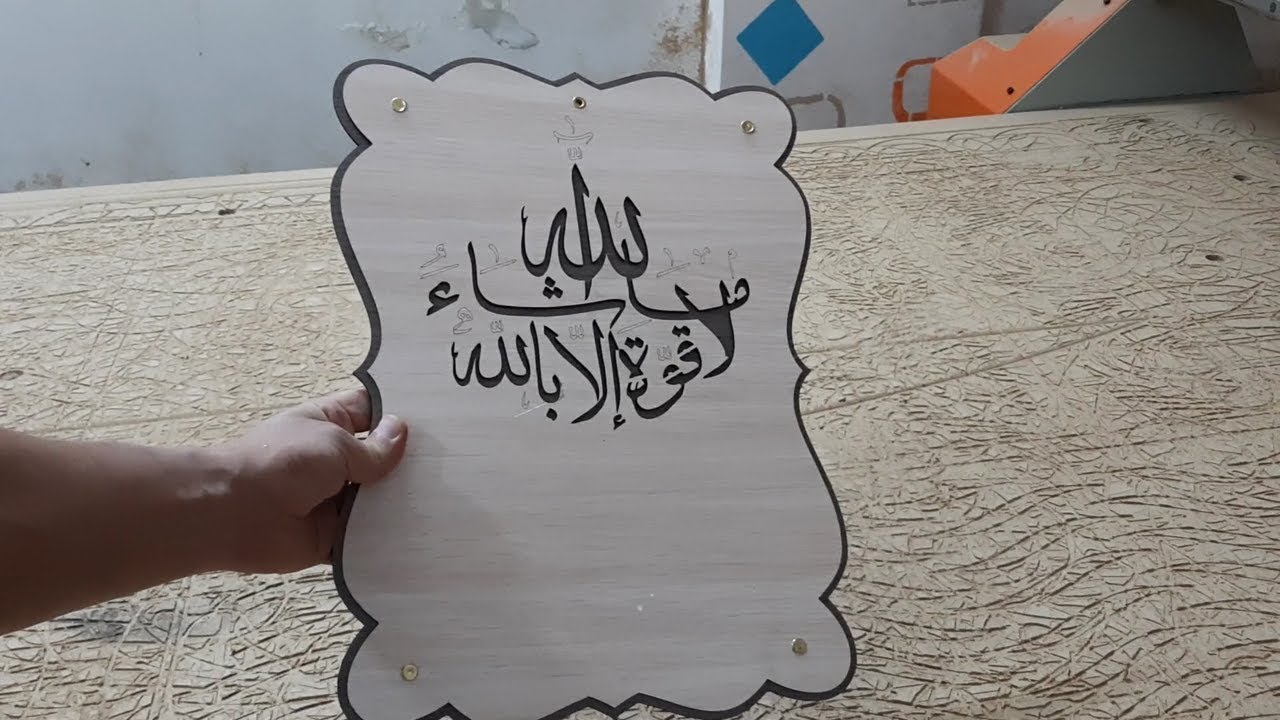 ما شاء الله
لا قوة إلا بالله